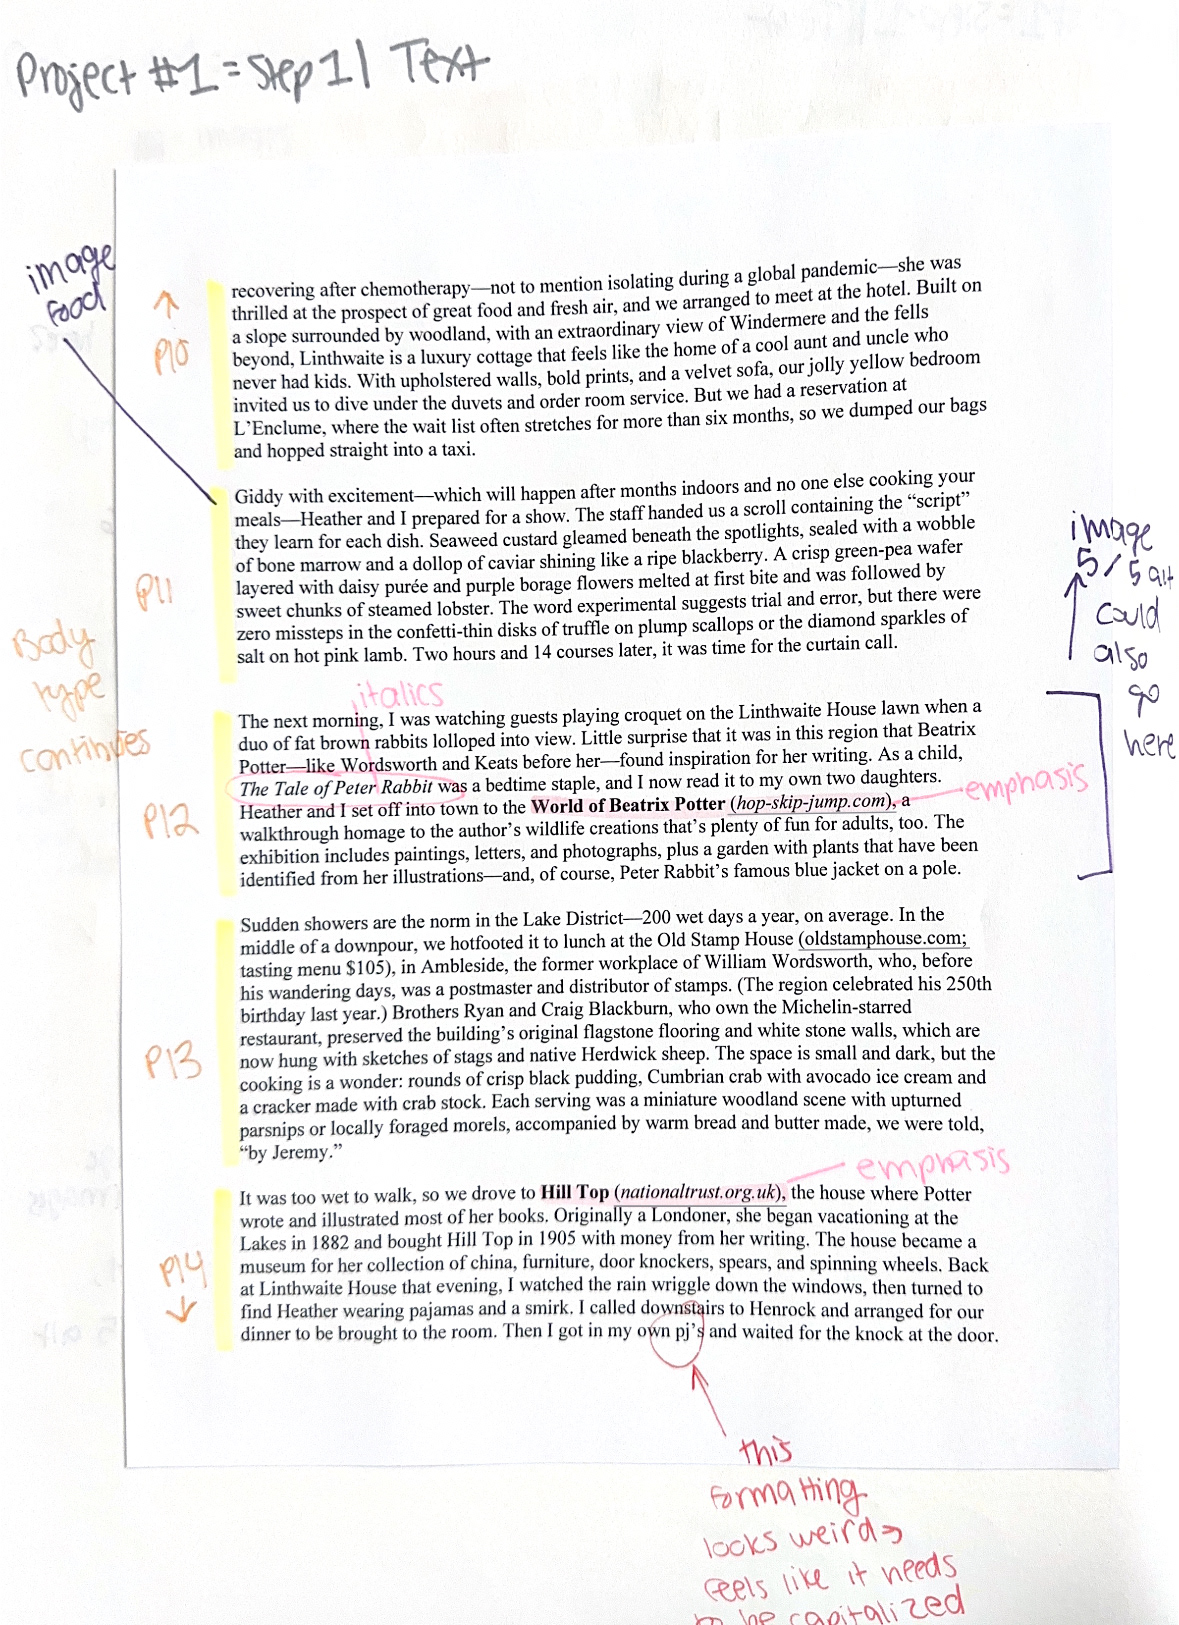 Project #1 = Step 1 | Text
image
food
↑
P10
recovering after chemotherapy—not to mention isolating during a global pandemic—she was
thrilled at the prospect of great food and fresh air, and we arranged to meet at the hotel. Built on
a slope surrounded by woodland, with an extraordinary view of Windermere and the fells
beyond, Linthwaite is a luxury cottage that feels like the home of a cool aunt and uncle who
never had kids. With upholstered walls, bold prints, and a velvet sofa, our jolly yellow bedroom
invited us to dive under the duvets and order room service. But we had a reservation at
L'Enclume, where the wait list often stretches for more than six months, so we dumped our bags
and hopped straight into a taxi.
P11
Giddy with excitement—which will happen after months indoors and no one else cooking your
meals—Heather and I prepared for a show. The staff handed us a scroll containing the “script”
they learn for each dish. Seaweed custard gleamed beneath the spotlights, sealed with a wobble
of bone marrow and a dollop of caviar shining like a ripe blackberry. A crisp green-pea wafer
layered with daisy purée and purple borage flowers melted at first bite and was followed by
sweet chunks of steamed lobster. The word experimental suggests trial and error, but there were
zero missteps in the confetti-thin disks of truffle on plump scallops or the diamond sparkles of
salt on hot pink lamb. Two hours and 14 courses later, it was time for the curtain call.
image
5/5 alt
could
also
go
here
Body
type
continues
italics
P12
The next morning, I was watching guests playing croquet on the Linthwaite House lawn when a
duo of fat brown rabbits lolloped into view. Little surprise that it was in this region that Beatrix
Potter—like Wordsworth and Keats before her—found inspiration for her writing. As a child,
The Tale of Peter Rabbit was a bedtime staple, and I now read it to my own two daughters.
Heather and I set off into town to the World of Beatrix Potter (hop-skip-jump.com), a
walkthrough homage to the author's wildlife creations that's plenty of fun for adults, too. The
exhibition includes paintings, letters, and photographs, plus a garden with plants that have been
identified from her illustrations—and, of course, Peter Rabbit's famous blue jacket on a pole.
emphasis
P13
Sudden showers are the norm in the Lake District—200 wet days a year, on average. In the
middle of a downpour, we hotfooted it to lunch at the Old Stamp House (oldstamphouse.com;
tasting menu $105), in Ambleside, the former workplace of William Wordsworth, who, before
his wandering days, was a postmaster and distributor of stamps. (The region celebrated his 250th
birthday last year.) Brothers Ryan and Craig Blackburn, who own the Michelin-starred
restaurant, preserved the building's original flagstone flooring and white stone walls, which are
now hung with sketches of stags and native Herdwick sheep. The space is small and dark, but the
cooking is a wonder: rounds of crisp black pudding, Cumbrian crab with avocado ice cream and
a cracker made with crab stock. Each serving was a miniature woodland scene with upturned
parsnips or locally foraged morels, accompanied by warm bread and butter made, we were told,
“by Jeremy.”
emphasis
P14
↓
It was too wet to walk, so we drove to Hill Top (nationaltrust.org.uk), the house where Potter
wrote and illustrated most of her books. Originally a Londoner, she began vacationing at the
Lakes in 1882 and bought Hill Top in 1905 with money from her writing. The house became a
museum for her collection of china, furniture, door knockers, spears, and spinning wheels. Back
at Linthwaite House that evening, I watched the rain wriggle down the windows, then turned to
find Heather wearing pajamas and a smirk. I called downstairs to Henrock and arranged for our
dinner to be brought to the room. Then I got in my own pj's and waited for the knock at the door.
this
formatting
looks weird →
feels like it needs
to be capitalized